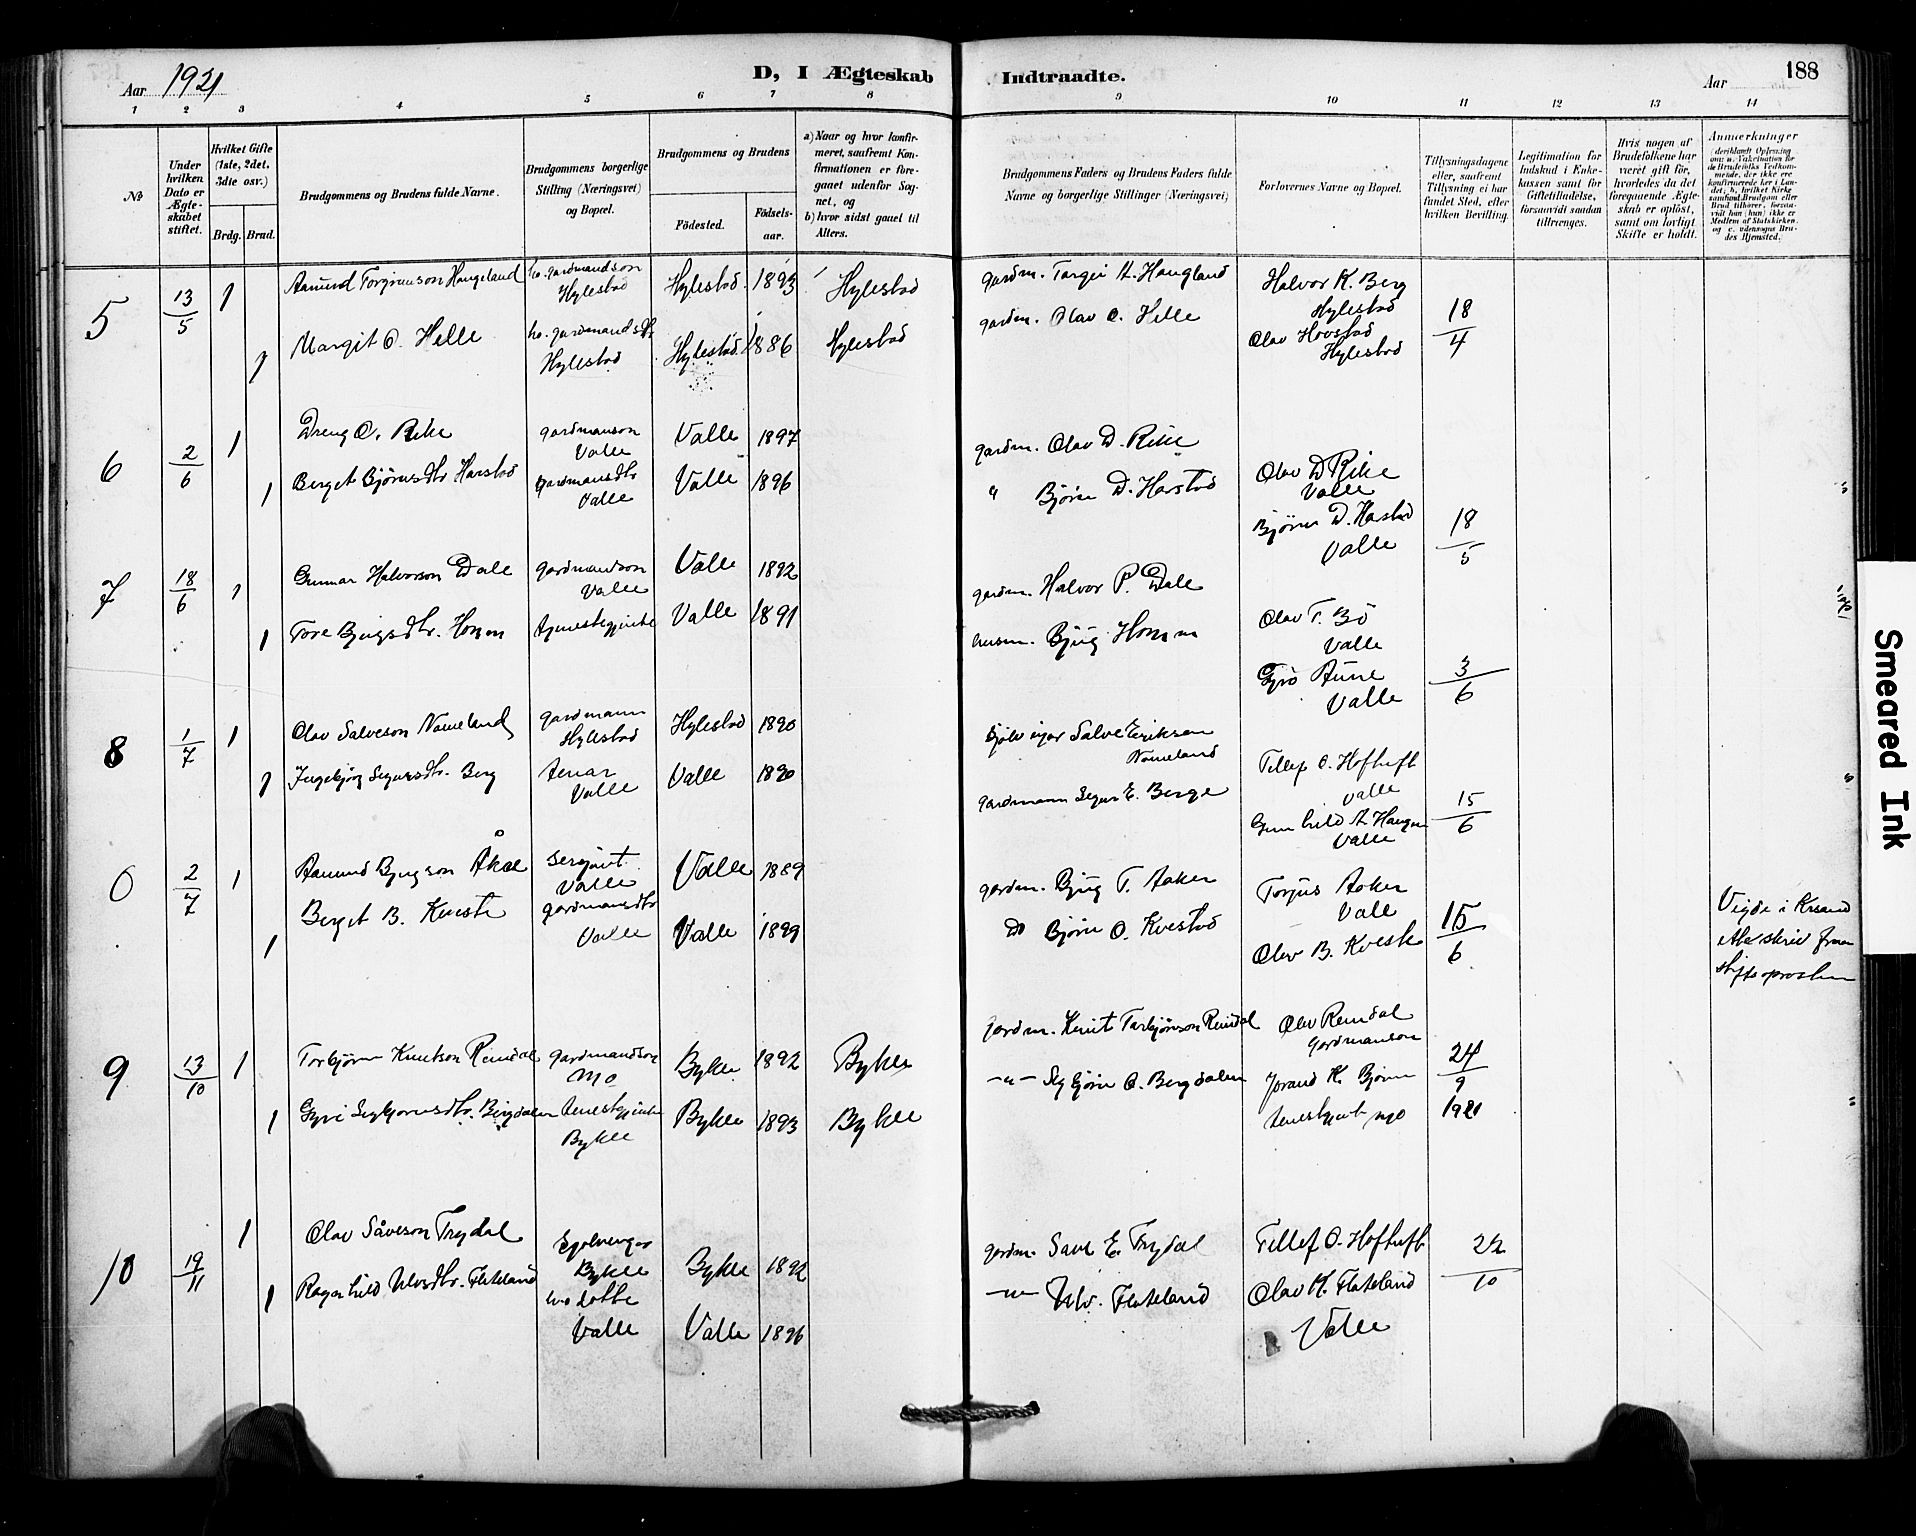 Aar 1921
D, I Ægteskab Indtraadte.
Aar
188
1 2 3 4 5 6 7 8 9 10 11 12 13 14
No
Under hvilken Dato er Ægteskabet stiftet.
Hvilket Gifte (1ste, 2det, 3die osv.)
Brdg. Brud.
Brudgommens og Brudens fulde Navne.
Brudgommens borgerlige Stilling (Næringsvei) og Bopæl.
Brudgommens og Brudens
Fødested.
Fødselsaar.
a) Naar og hvor konfirmeret, saafremt Konfirmationen er foregaaet udenfor Sognet, og
b) hvor sidst gaaet til Alters.
Brudgommens Faders og Brudens Faders fulde Navne og borgerlige Stillinger (Næringsvei)
Forlovernes Navne og Bopæl.
Tillysningsdagene eller, saafremt Tillysning ei har fundet Sted, efter hvilken Bevilling.
Legitimation for Indskud i Enkekassen samt for Giftetilladelse, forsaavidt saadan tiltrænges.
Hvis nogen af Brudefolkene har været gift før, hvorledes da det foregaaende Ægteskab er opløst, samt om lovligt Skifte er holdt.
Anmerkninger
5 13/5 1 Aamund Torgeirson Haugeland ho. gardmandson Hylestad Hylestad 1893 Hylestad gardm. Targei A. Haugland Halvor K. Berg Hylestad
1 Margit O. Helle ho. gardmandsdtr Hylestad Hylestad 1886 Hylestad gardm. Olav O. Helle Olav Hovstad Hylestad 18/4
6 2/6 1 Dreng O. Rike gardmanson Valle Valle 1897 gardm. Olav D. Rike Olav D Rike Valle
1 Berget Bjørnsdtr Harstad gardmansdtr Valle Valle 1896 " Bjørn D. Harstad Bjørn D. Harstad Valle 18/5
7 18/6 1 Gunnar Halvorson Dale gardmandson Valle Valle 1892 gardm. Halvor P. Dale Olav T. Bö Valle
1 Tore Bjugsdtr. Homm tjenestegjente Valle 1891 husm. Bjug Homm Valle 3/6
8 1/7 1 Olav Salveson Nomeland gardmann Hylestad Hylestad 1890 Sjølveigar Salve Eriksen Nomeland Tellef O. Hoftuft Valle
1 Ingebjørg Sigursdtr. Berg Valle Valle 1890 gardmann Sigur E. Berge Gunhild A Haugen Valle 15/6
0 2/7 1 Aamund Bjugson Åker Sersjant Valle Valle 1889 gardm. Bjug T. Aaker Torjus Aaker Valle
1 Berget B. Kveste gardmansdtr Valle Valle 1899 Do Bjørn O. Kvestad Olav B. Kveste 15/6
Vigde i Krsand
9 23/10 1 Torbjørn Knutson Remdal gardmandson Mo Bykle 1892 Bykle gardm. Knut Tarbjörnson Remdal Olav Remdal gardmanson
1 Gyri Sigbjørnsdtr. Bergdalen tenestgjente Bykle Bykle 1893 Bykle -"- Sigbjørn O. Bergdalen Jorand K. Bjørn tenestgjente Mo 24/9 1921
10 19/11 1 Olav Såveson Trydal Sjølveigar Bykle Bykle 1892 gardm. Save E. Trydal Tellef O. Hoftuft
1 Ragnhild Ulvsdtr. Flateland Valle Valle 1896 -"- Ulv. Flateland Olav K. Flateland Valle 22/10
Smeared Ink